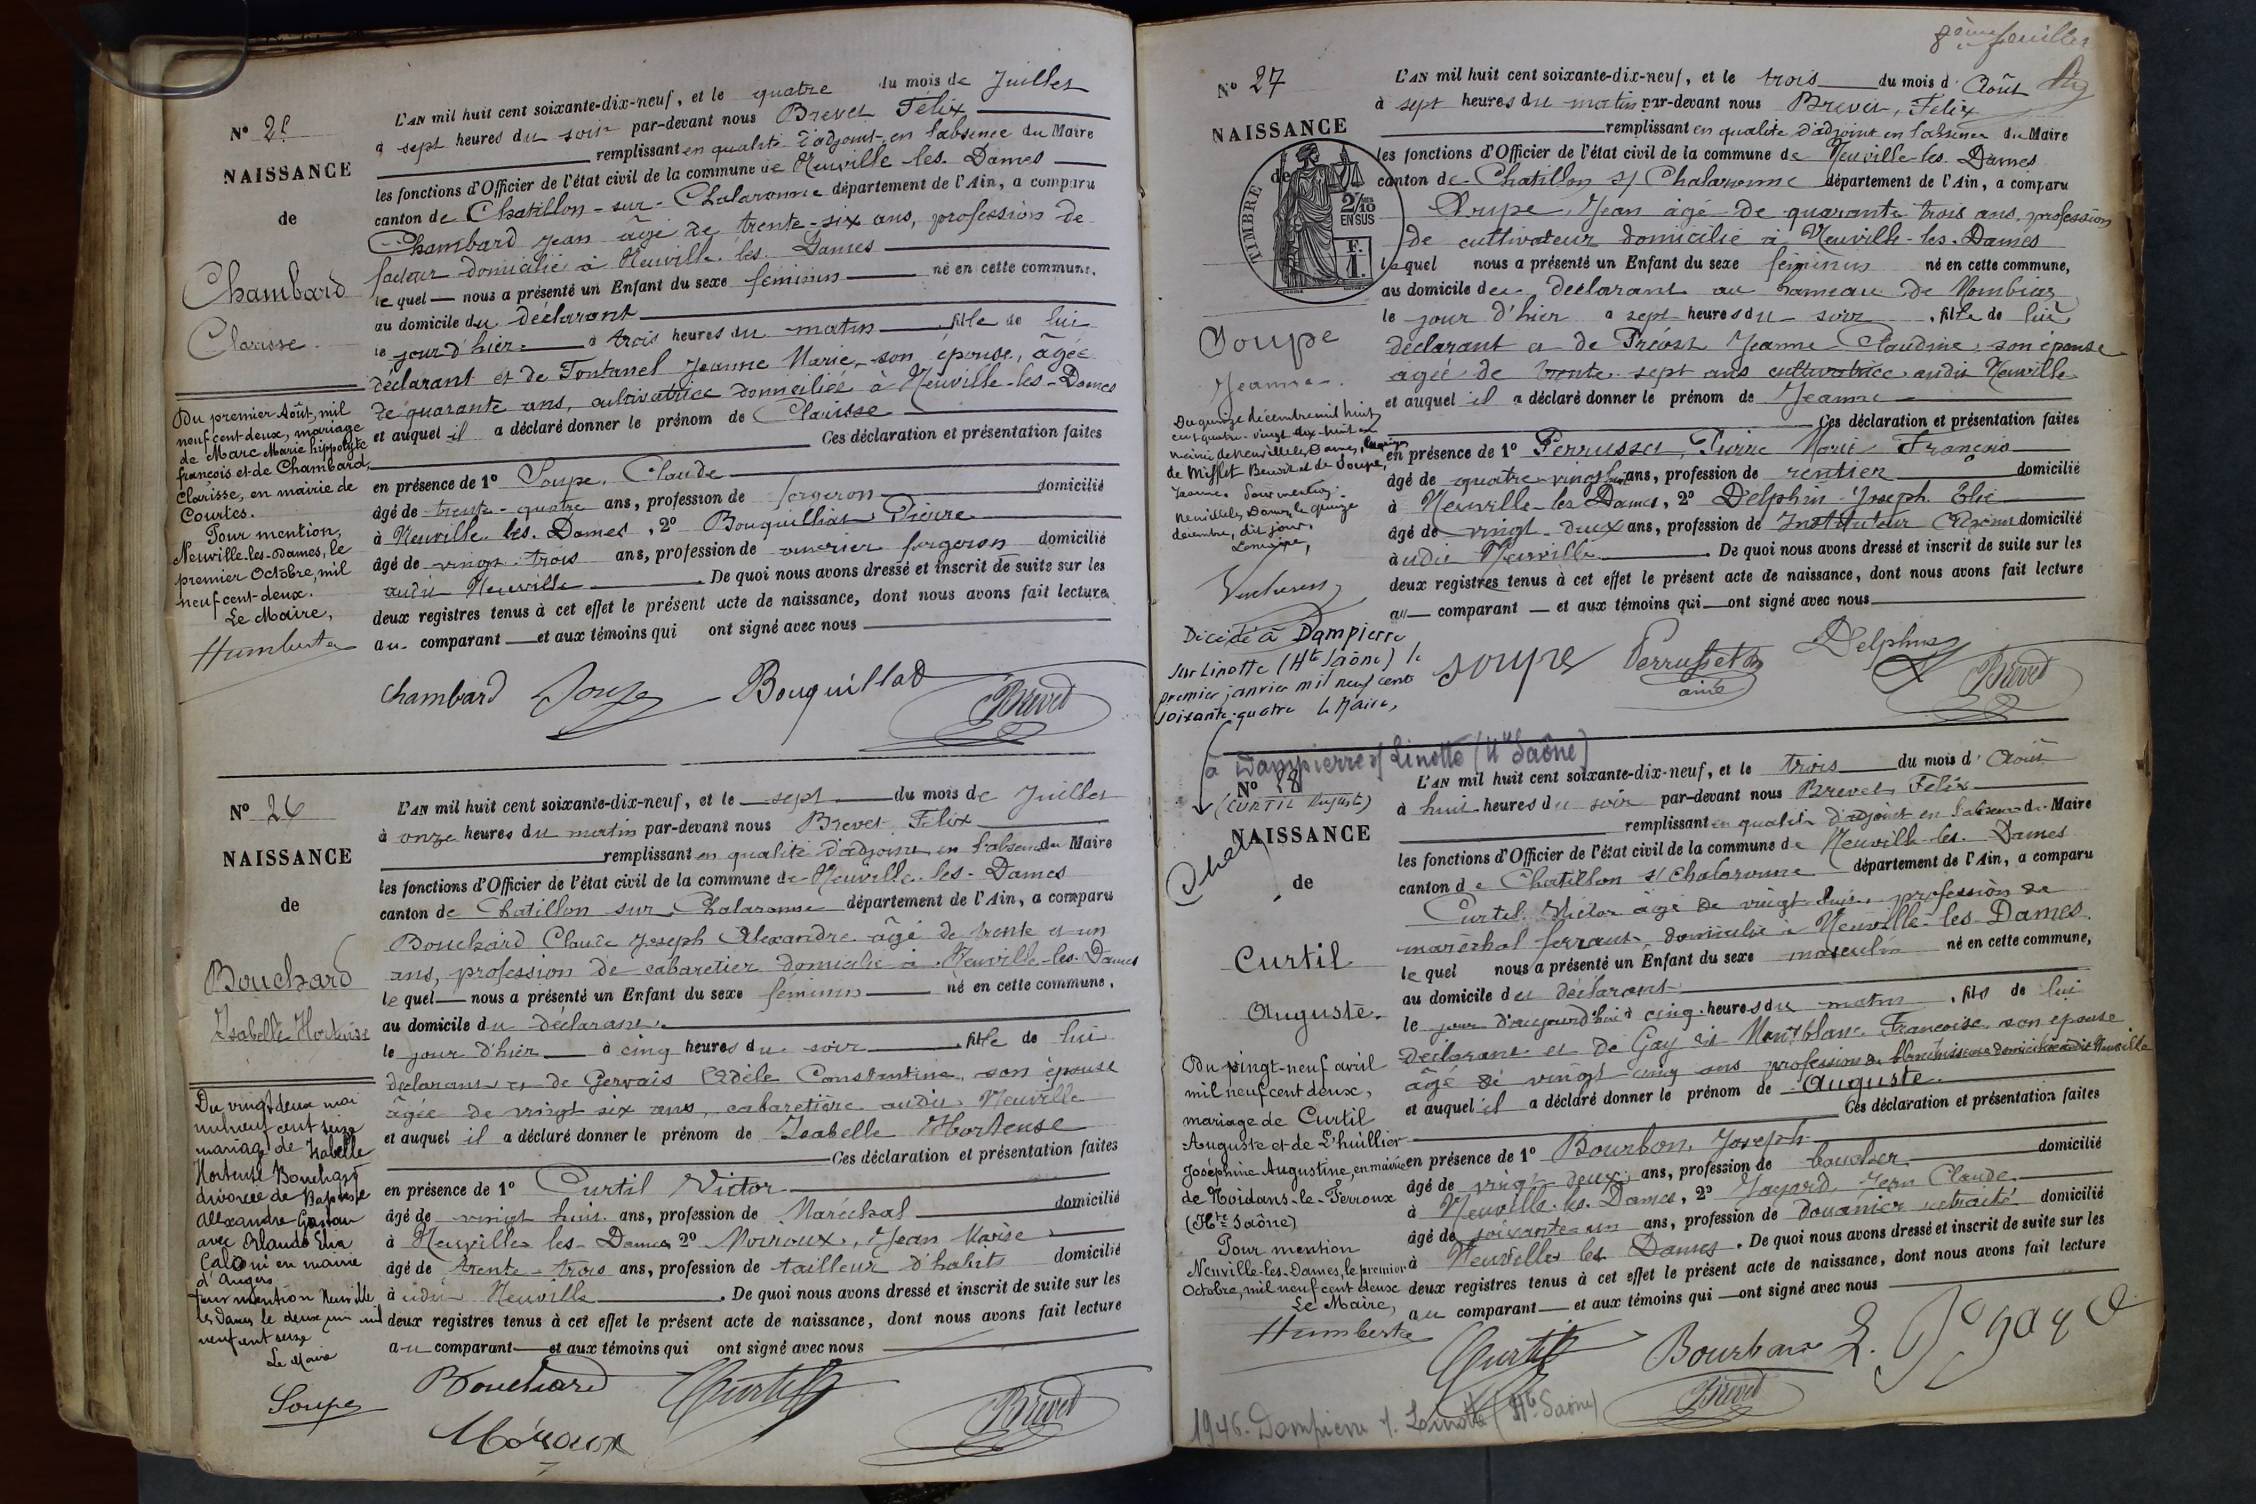 N° 25
NAISSANCE
de
Chambard
Clarisse
L'AN mil huit cent soixante-dix-neuf, et le quatre du mois de Juillet
à sept heures du soir par-devant nous Brevet Félix
remplissant en qualité d'adjoint en l'absence du Maire
les fonctions d'Officier de l'état civil de la commune de Neuville-les-Dames
canton de Chatillon-sur-Chalaronne département de l'Ain, a comparu
Chambard Jean âgé de trente-six ans, profession de
facteur domicilié à Neuville-les-Dames
lequel nous a présenté un Enfant du sexe féminin né en cette commune,
au domicile du déclarant
le jour d'hier à trois heures du matin fille de lui
déclarant et de Fontanel Jeanne Marie, son épouse, âgée
de quarante ans, cultivatrice domiciliée à Neuville-les-Dames
et auquel il a déclaré donner le prénom de Clarisse
Ces déclaration et présentation faites
en présence de 1° Soupe, Claude
âgé de trente-quatre ans, profession de forgeron domicilié
à Neuville-les-Dames, 2° Bouquillat Pierre
âgé de vingt-trois ans, profession de ouvrier forgeron domicilié
audit Neuville. De quoi nous avons dressé et inscrit de suite sur les
deux registres tenus à cet effet le présent acte de naissance, dont nous avons fait lecture
au comparant et aux témoins qui ont signé avec nous
chambard Soupe Bouquillat Brevet
Du premier Août, mil
neuf cent deux, mariage
de Marc Marie hippolyte
françois et de Chambard,
Clarisse, en mairie de
Courtes.
Pour mention,
Neuville-les-Dames, le
premier Octobre, mil
neuf-cent-deux.
Le Maire,
Humbert
N° 26
NAISSANCE
de
Bouchard
Isabelle Hortense
L'AN mil huit cent soixante-dix-neuf, et le sept du mois de Juillet
à onze heures du matin par-devant nous Brevet, Félix
remplissant en qualité d'adjoint en l'absence du Maire
les fonctions d'Officier de l'état civil de la commune de Neuville-les-Dames
canton de Chatillon sur Chalaronne département de l'Ain, a comparu
Bouchard Claude Joseph Alexandre âgé de trente et un
ans, profession de cabaretier domicilié à Neuville-les-Dames
lequel nous a présenté un Enfant du sexe féminin né en cette commune,
au domicile du déclarant
le jour d'hier à cinq heures du soir fille de lui
déclarant et de Gervais Adèle Constantine, son épouse
âgée de vingt six ans, cabaretière audit Neuville
et auquel il a déclaré donner le prénom de Isabelle Hortense
Ces déclaration et présentation faites
en présence de 1° Curtil Victor
âgé de vingt huit ans, profession de Maréchal domicilié
à Neuville les-Dames 2° Moiroux, Jean Marie
âgé de trente-trois ans, profession de tailleur d'habits domicilié
à udit Neuville. De quoi nous avons dressé et inscrit de suite sur les
deux registres tenus à cet effet le présent acte de naissance, dont nous avons fait lecture
au comparant et aux témoins qui ont signé avec nous
Bouchard Curtil Brevet
Du vingt deux mai
mil neuf cent seize
mariage de Isabelle
Hortense Bouchard
divorcée de Baptiste
Alexandre
avec Orlando Elia
en mairie
d'Angers
Pour mention Neuville
les Dames le deux juin mil
neuf cent seize
Le Maire
Soupe
8ème feuillet
N° 27
NAISSANCE
de
TIMBRE
2/10
EN SUS
F.
1.
Soupe
Jeanne
L'AN mil huit cent soixante-dix-neuf, et le trois du mois d'Août
à sept heures du matin par-devant nous Brevet, Félix
remplissant en qualité d'adjoint en l'absence du Maire
les fonctions d'Officier de l'état civil de la commune de Neuville-les-Dames
canton de Chatillon s/ Chalaronne département de l'Ain, a comparu
Soupe, Jean âgé de quarante trois ans, profession
de cultivateur domicilié à Neuville-les-Dames
lequel nous a présenté un Enfant du sexe féminin né en cette commune,
au domicile du déclarant au hameau de
le jour d'hier à sept heures du soir, fille de lui
déclarant et de Prévost Jeanne Claudine, son épouse
agée de trente sept ans cultivatrice audit Neuville
et auquel il a déclaré donner le prénom de Jeanne
Ces déclaration et présentation faites
en présence de 1° Perrusset, Pierre Marie François
âgé de quatre-vingt ans, profession de rentier domicilié
à Neuville-les-Dames, 2° Delphin Joseph Elie
âgé de vingt-deux ans, profession de Instituteur domicilié
audit Neuville. De quoi nous avons dressé et inscrit de suite sur les
deux registres tenus à cet effet le présent acte de naissance, dont nous avons fait lecture
au comparant et aux témoins qui ont signé avec nous
soupe Perrusset aîné Delphin Brevet
Du quinze décembre mil huit
cent quatre-vingt-dix-huit en
mairie de Neuville les Dames, mariage
de Mifflet Benoit et de Soupe,
Jeanne. Pour mention.
Neuville les Dames, le quinze
décembre, dit jour.
Le maire,
Décédé à Dampierre
sur Linotte (Hte Saône) le
premier janvier mil neuf cent
soixante-quatre le Maire,
à Dampierre s/ Linotte (Hte Saône)
N° 28
(CURTIL Auguste)
NAISSANCE
de
Curtil
Auguste.
L'AN mil huit cent soixante-dix-neuf, et le trois du mois d'Août
à huit heures du soir par-devant nous Brevet, Félix
remplissant en qualité d'adjoint en l'absence du Maire
les fonctions d'Officier de l'état civil de la commune de Neuville-les-Dames
canton de Chatillon s/ Chalaronne département de l'Ain, a comparu
Curtil Victor âgé de vingt-huit, profession de
maréchal ferrant, domicilié à Neuville-les-Dames.
lequel nous a présenté un Enfant du sexe masculin né en cette commune,
au domicile du déclarant
le jour d'aujourd'hui à cinq heures du matin, fils de lui
déclarant et de Gay dit Montblanc Françoise son épouse
âgé de vingt-cinq ans profession de blanchisseuse domiciliée audit Neuville
et auquel il a déclaré donner le prénom de Auguste.
Ces déclaration et présentation faites
en présence de 1° Bourbon, Joseph
âgé de vingt-deux ans, profession de boucher domicilié
à Neuville-les-Dames, 2° Jayard, Jean Claude
âgé de soixante-un ans, profession de douanier retraité domicilié
à Neuville les Dames. De quoi nous avons dressé et inscrit de suite sur les
deux registres tenus à cet effet le présent acte de naissance, dont nous avons fait lecture
au comparant et aux témoins qui ont signé avec nous
Curtil Bourbon Brevet
Du vingt-neuf avril
mil neuf cent deux,
mariage de Curtil
Auguste et de L'huillier
Joséphine Augustine, en mairie
de Noidans-le-Ferroux
(Hte Saône)
Pour mention
Neuville-les-Dames, le premier
Octobre, mil neuf cent deux
Le Maire,
Humbert
1946. Dampierre s/. Linotte (Hte Saône)